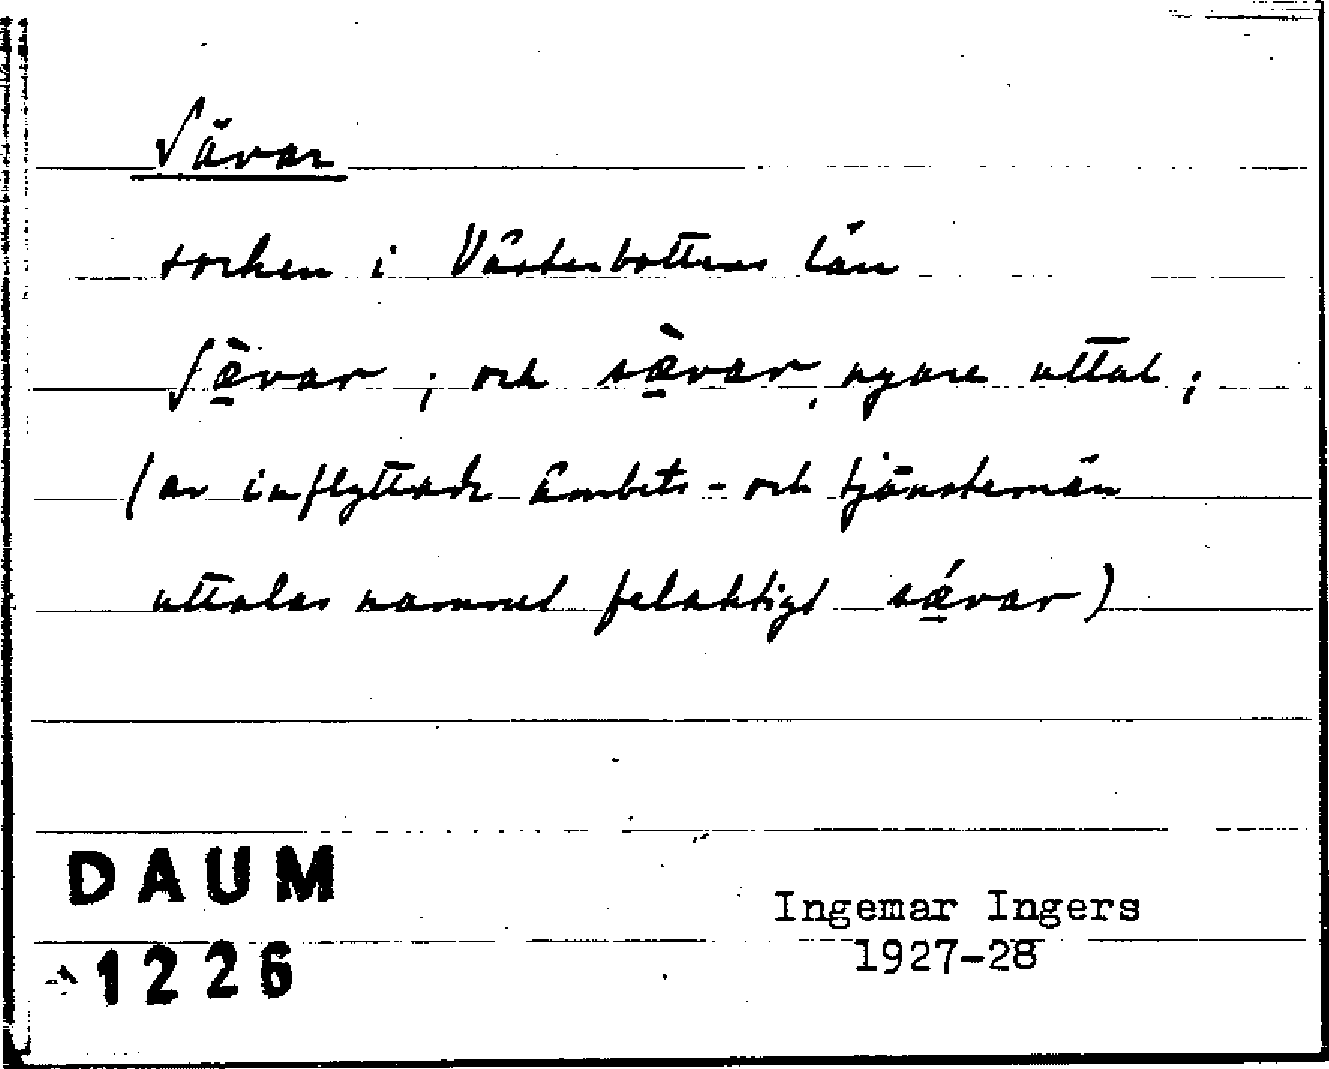 Sävar
socken i Västerbottens län
ʃæ̱̀var ; och sæ̱̀var, nyare uttal ;
(av inflyttade ämbets- och tjänstemän
uttalas namnet felaktigt sǽ̱var)
DAUM
1226
Ingemar Ingers
1927-28